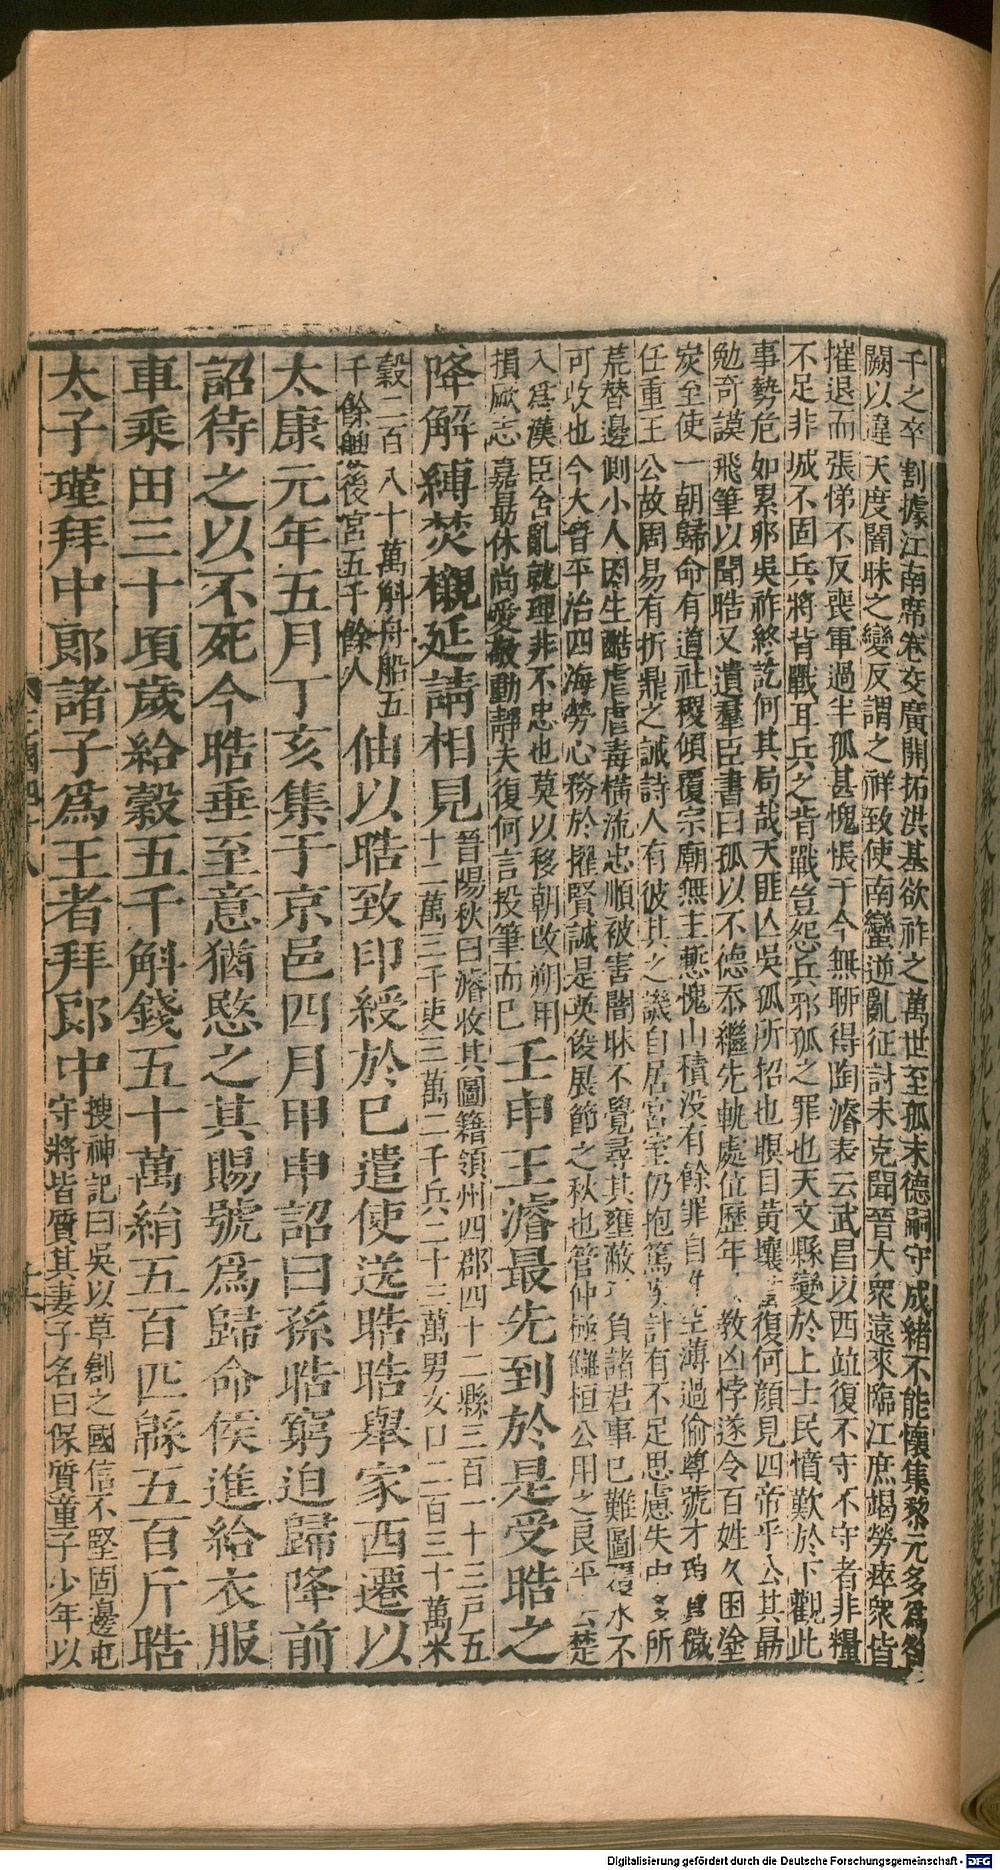 千之卒割據江南席卷交廣開拓洪基欲祚之萬世至孤末德嗣守成緒不能懷集黎元多爲咎
闕以違天度闇昧之變反謂之祥致使南蠻逆亂征討未克聞晉大衆遠來臨江庶竭勞瘁衆皆
摧退而張悌不反喪軍過半孤甚愧悵于今無聊得陶濬表云武昌以西竝復不守不守者非糧
不足非城不固兵將背戰耳兵之背戰豈怨兵邪孤之罪也天文縣變於上士民憤歎於下觀此
事勢危如累卵吳祚終訖何其局哉天匪亾吳孤所招也瞑目黃壤當復何顏見四帝乎公其勗
勉奇謨飛筆以聞晧又遺羣臣書曰孤以不德忝繼先軌處位歷年教凶悖遂令百姓久困塗
炭至使一朝歸命有道社稷傾覆宗廟無主慙愧山積没有餘罪自空薄過偷尊號才穢
任重王公故周易有折鼎之誡詩人有彼其之譏自居宮室仍抱篤疾計有不足思慮失中多所
荒替邊側小人因生酷虐虐毒橫流忠順被害闇昧不覺尋其壅蔽負諸君事已難圖覆水不
可收也今大晉平治四海勞心務於擢賢誠是英俊展節之秋也管仲極讎桓公用之良平去楚
入爲漢臣舍亂就理非不忠也莫以移朝改朔用
損厥志嘉勗休尚愛敬動靜夫復何言投筆而已壬申王濬最先到於是受晧之
降解縛焚櫬延請相見晉陽秋曰濬收其圖籍領州四郡四十二縣三百一十三戸五
十二萬三千吏三萬二千兵二十三萬男女口二百三十萬米
穀二百八十萬斛舟船五
千餘艘後宮五千餘人伷以晧致印綬於已遣使送晧晧舉家西遷以
太康元年五月丁亥集于京邑四月甲申詔曰孫晧窮迫歸降前
詔待之以不死今晧垂至意猶愍之其賜號爲歸命侯進給衣服
車乘田三十頃歲給穀五千斛錢五十萬絹五百匹緜五百斤晧
太子瑾拜中郎諸子爲王者拜郎中搜神記曰吳以草創之國信不堅固邊屯
守將皆質其妻子名曰保質童子少年以
Digitalisierung gefördert durch die Deutsche Forschungsgemeinschaft - DFG